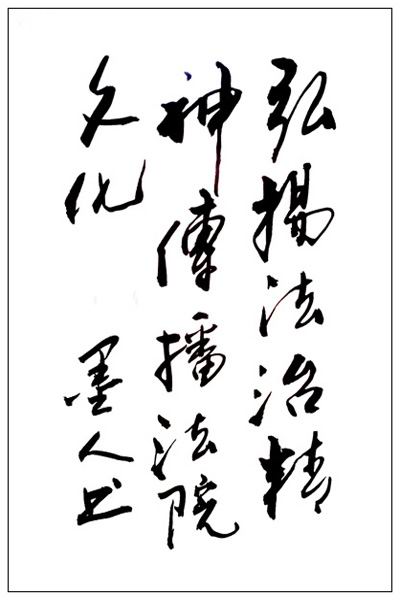 弘揚法治精
神傳播法院
文化
墨人书